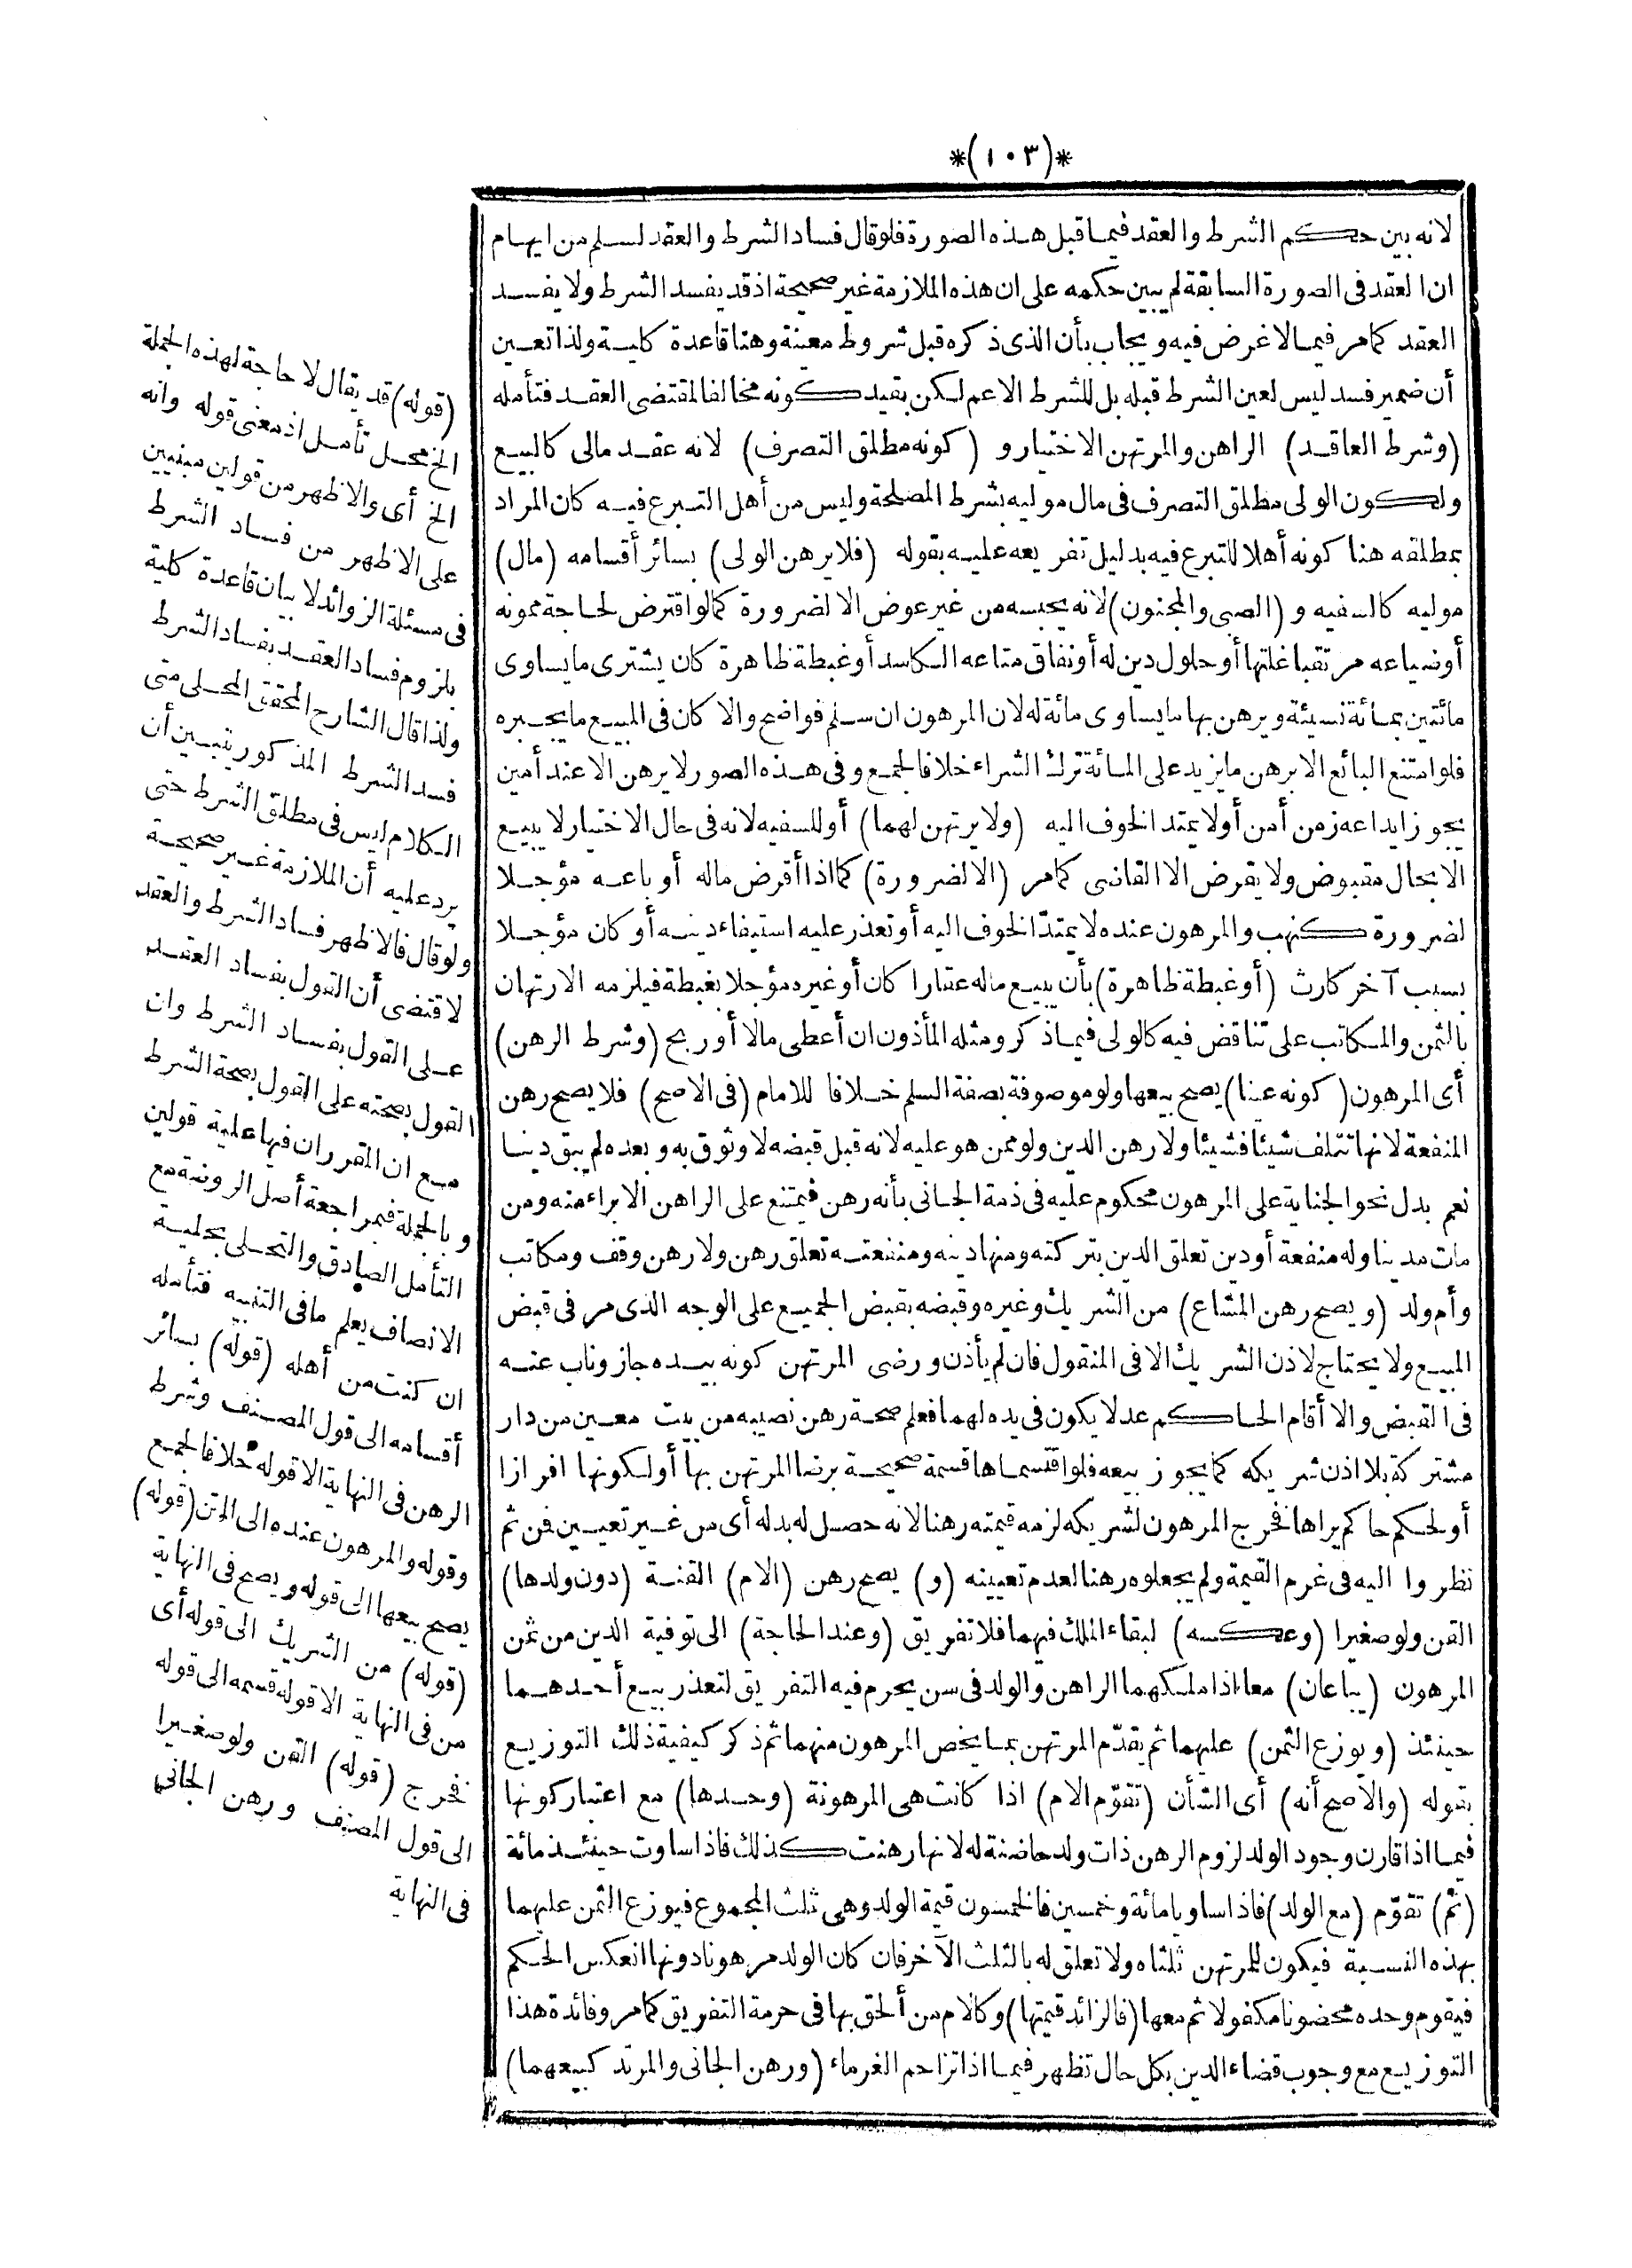 *(١٠٣)*
لانه بين حكم الشرط والعقد فيما قبل هذه الصورة فلو قال فساد الشرط والعقد لسلم من ايهام
ان العقد فى الصورة السابقة لم يبين حكمه على ان هذه الملازمة غير صحيحة اذ قد يفسد الشرط ولا يفسد
العقد كما مر فيما لا غرض فيه ويجاب بأن الذى ذكره قبل شروط معينة وهنا قاعدة كلية ولذا تعين
أن ضمير فسد ليس لعين الشرط قبله بل للشرط الاعم لكن بقيد كونه مخالفا لمقتضى العقد فتأمله
(وشرط العاقد) الراهن والمرتهن الاختيار و (كونه مطلق التصرف) لانه عقد مالى كالبيع
ولكون الولى مطلق التصرف فى مال موليه بشرط المصلحة وليس من أهل التبرع فيه كان المراد
بمطلقه هنا كونه أهلا للتبرع فيه بدليل تفريعه عليه بقوله (فلا يرهن الولى) بسائر أقسامه (مال)
موليه كالسفيه و (الصبى والمجنون) لانه يحبسه من غير عوض الا لضرورة كما لو اقترض لحاجة ممونه
أو ضياعه مرتقبا غلتها أو حلول دين له أو نفاق متاعه الكاسد أو غبطة ظاهرة كان يشترى ما يساوى
مائتين بمائة نسيئة ويرهن بها ما يساوى مائة له لان المرهون ان سلم فواضح والا كان فى المبيع ما يجبره
فلو امتنع البائع الا برهن ما يزيد على المائة ترك الشراء خلافا لجمع وفى هذه الصور لا يرهن الا عند أمين
يجوز ايداعه زمن أمن أو لا يمتد الخوف اليه (ولا يرتهن لهما) أو للسفيه لانه فى حال الاختيار لا يبيع
الا بحال مقبوض ولا يقرض الا القاضى كما مر (الا لضرورة) كما اذا أقرض ماله أو باعه مؤجلا
لضرورة كنهب والمرهون عنده لا يمتدّ الخوف اليه أو تعذر عليه استيفاء دينه أو كان مؤجلا
بسبب آخر كارث (أو غبطة ظاهرة) بأن يبيع ماله عقارا كان أو غيره مؤجلا بغبطة فيلزمه الارتهان
بالثمن والمكاتب على تناقض فيه كالولى فيما ذكر ومثله المأذون ان أعطى مالا أو ربح (وشرط الرهن)
أى المرهون (كونه عينا) يصح بيعها ولو موصوفة بصفة السلم خلافا للامام (فى الاصح) فلا يصح رهن
المنفعة لانها تتلف شيئا فشيئا ولا رهن الدين ولو ممن هو عليه لانه قبل قبضه لا وثوق به وبعده لم يبق دينا
نعم بدل نحو الجناية على المرهون محكوم عليه فى ذمة الجانى بأنه رهن فيمتنع على الراهن الابراء منه ومن
مات مدينا وله منفعة أو دين تعلق الدين بتركته ومنها دينه ومنفعته تعلق رهن ولا رهن وقف ومكاتب
وأم ولد (ويصح رهن المشاع) من الشريك وغيره وقبضه بقبض الجميع على الوجه الذى مر فى قبض
المبيع ولا يحتاج لاذن الشريك الا فى المنقول فان لم يأذن ورضى المرتهن كونه بيده جاز وناب عنه
فى القبض والا أقام الحاكم عدلا يكون فى يده لهما فعلم صحة رهن نصيبه من بيت معين من دار
مشتركة بلا اذن شريكه كما يجوز بيعه فلو اقتسماها قسمة صحيحة برضا المرتهن بها أو لكونها افرازا
أو لحكم حاكم يراها فخرج المرهون لشريكه لزمه قيمته رهنا لانه حصل له بدله أى من غير تعيين فمن ثم
نظروا اليه فى غرم القيمة ولم يجعلوه رهنا لعدم تعيينه (و) يصح رهن (الام) القنة (دون ولدها)
القن ولو صغيرا (وعكسه) لبقاء الملك فيهما فلا تفريق (وعند الحاجة) الى توفية الدين من ثمن
المرهون (يباعان) معا اذا ملكهما الراهن والولد فى سن يحرم فيه التفريق لتعذر بيع أحدهما
حينئذ (ويوزع الثمن) عليهما ثم يقدّم المرتهن بما يخص المرهون منهما ثم ذكر كيفية ذلك التوزيع
بقوله (والاصح أنه) أى الشأن (تقوّم الام) اذا كانت هى المرهونة (وحدها) مع اعتبار كونها
فيما اذا قارن وجود الولد لزوم الرهن ذات ولد حاضنة له لانها رهنت كذلك فاذا ساوت حينئذ مائة
(ثم) تقوّم (مع الولد) فاذا ساويا مائة وخمسين فالخمسون قيمة الولد وهى ثلث المجموع فيوزع الثمن عليهما
بهذه النسبة فيكون للمرتهن ثلثاه ولا تعلق له بالثلث الآخر فان كان الولد مرهونا دونها انعكس الحكم
فيقوم وحده محضونا مكفولا ثم معها (فالزائد قيمتها) وكالام من ألحق بها فى حرمة التفريق كما مر وفائدة هذا
التوزيع مع وجوب قضاء الدين بكل حال تظهر فيما اذا تزاحم الغرماء (ورهن الجانى والمرتد كبيعهما)
(قوله) قد يقال لا حاجة لهذه الجملة
الخ محل تأمل اذ معنى قوله وانه
الخ أى والاظهر من قولين مبنيين
على الاظهر من فساد الشرط
فى مسئلة الزوائد لا بيان قاعدة كلية
بلزوم فساد العقد بفساد الشرط
ولذا قال الشارح المحقق المحلى متى
فسد الشرط المذكور يتبين أن
الكلام ليس فى مطلق الشرط حتى
يرد عليه أن الملازمة غير صحيحة
ولو قال فالاظهر فساد الشرط والعقد
لاقتضى أن القول بفساد العقد
على القول بفساد الشرط وان
القول بصحته على القول بصحة الشرط
مع ان المقرر ان فيها علية قولين
وبالجملة فبمراجعة أصل الروضة مع
التأمل الصادق والتحلى بحلية
الانصاف يعلم ما فى التنبيه فتأمله
ان كنت من أهله (قوله) بسائر
أقسامه الى قول المصنف وشرط
الرهن فى النهاية الا قوله خلافا لجمع
وقوله والمرهون عنده الى المتن (قوله)
يصح بيعها الى قوله ويصح فى النهاية
(قوله) من الشريك الى قوله أى
من فى النهاية الا قوله قسمه الى قوله
فخرج (قوله) القن ولو صغيرا
الى قول المصنف ورهن الجانى
فى النهاية